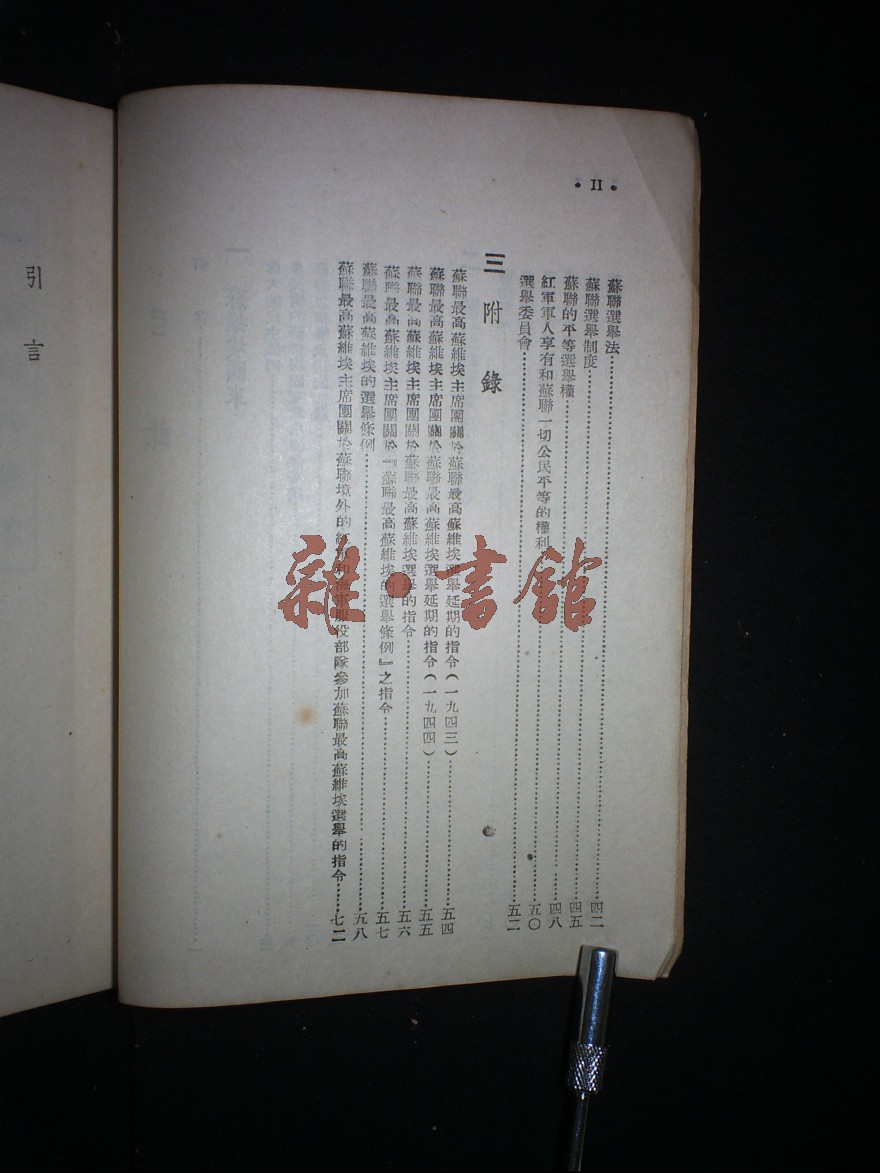 • II •
蘇聯選舉法……42
蘇聯選舉制度……四五
蘇聯的平等選舉權……四八
紅軍軍人享有和蘇聯一切公民平等的權利……五〇
選舉委員會……五二
三 附錄
蘇聯最高蘇維埃主席團關於蘇聯最高蘇維埃選舉延期的指令(一九四三)……五四
蘇聯最高蘇維埃主席團關於蘇聯最高蘇維埃選舉延期的指令(一九四四)……五五
蘇聯最高蘇維埃主席團關於蘇聯最高蘇維埃選舉的指令……五六
蘇聯最高蘇維埃主席團關於『蘇聯最高蘇維埃的選舉條例』之指令……五七
蘇聯最高蘇維埃的選舉條例……五八
蘇聯最高蘇維埃主席團關於蘇聯境外的紅軍和海軍服役部隊參加蘇聯最高蘇維埃選舉的指令……七二
引言
雜·書館